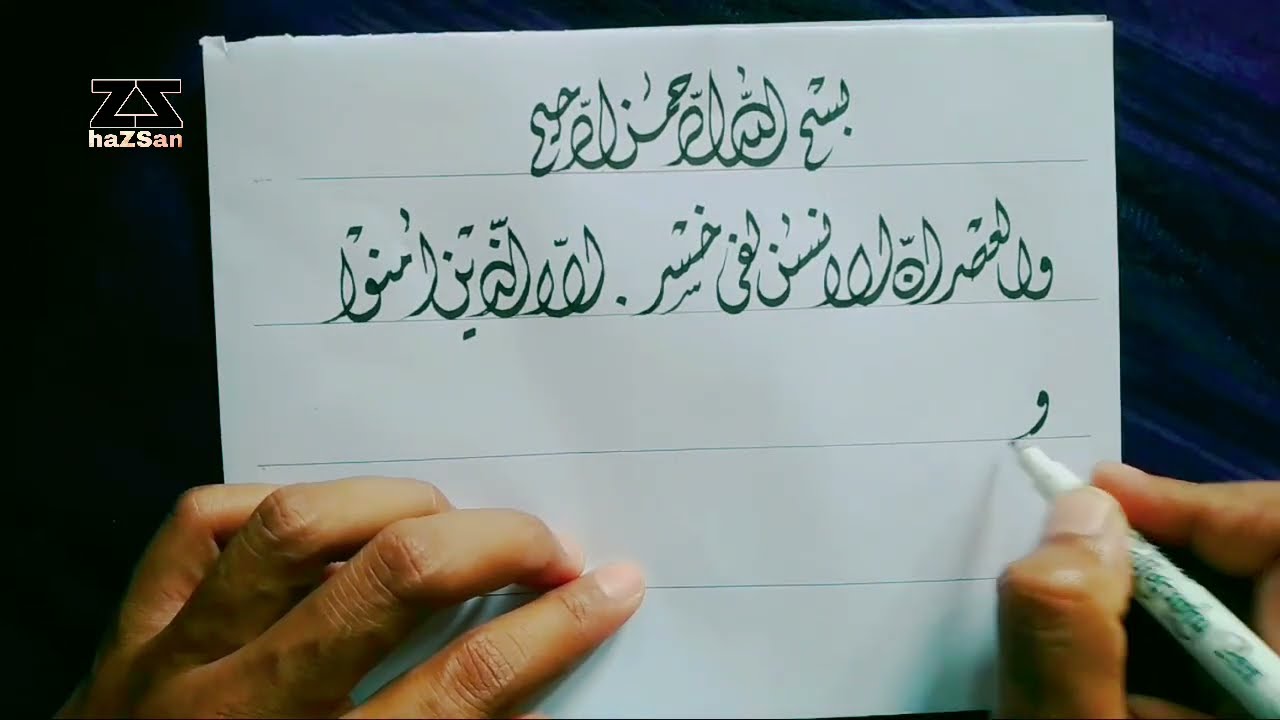 haZSan
بسم الله الرحمن الرحيم
والعصر ان الانسٰن لفى خسر . الاّ الّذين اٰمنوا
و